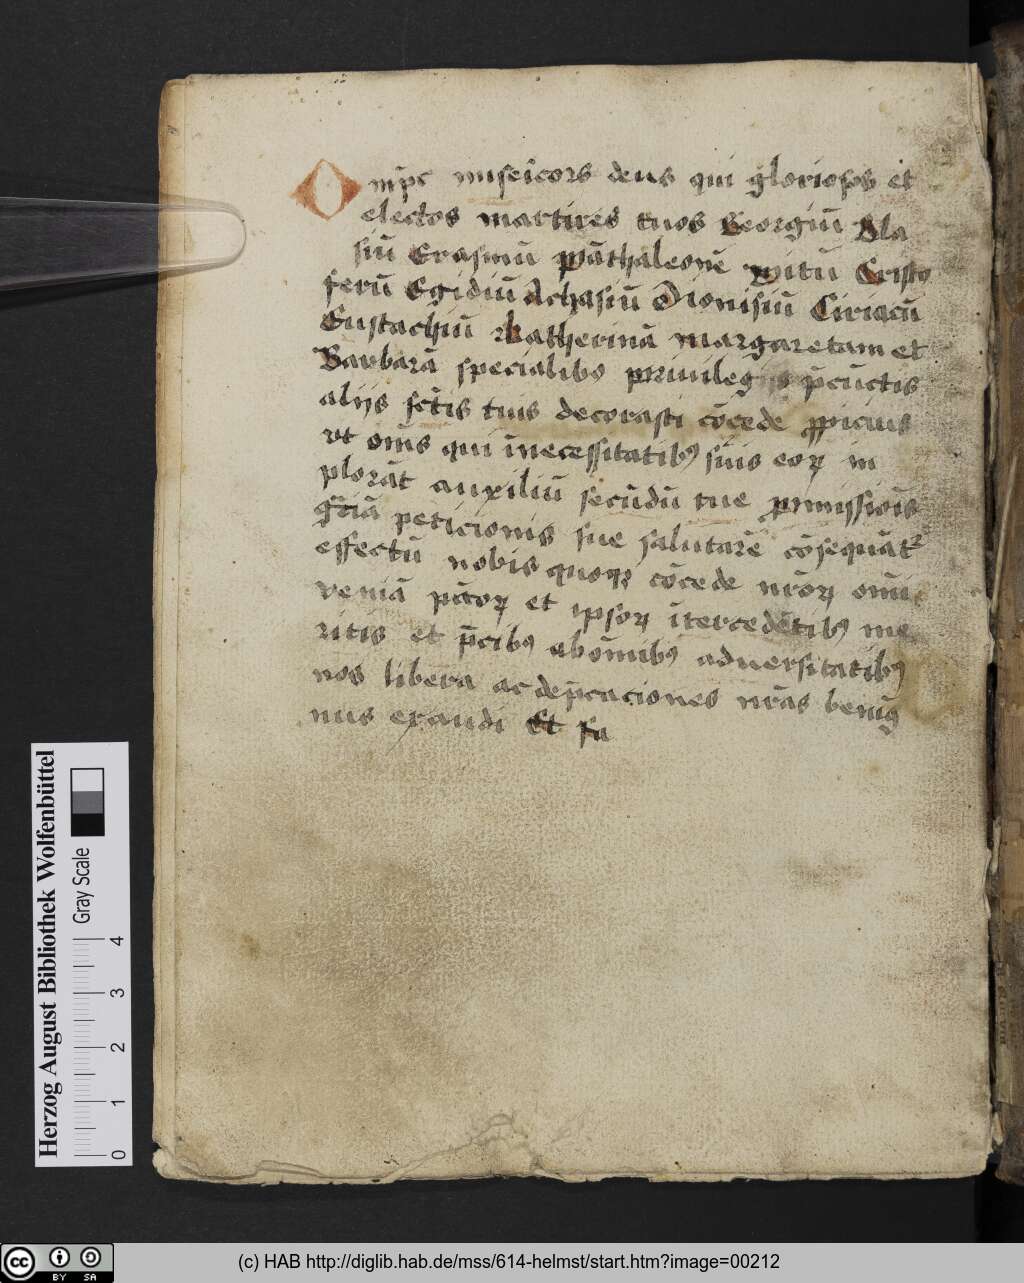 Omp̄s miserīcors deus qui gloriosos et
electos martires tuos Georgiū Bla
siū Erasmū Pāthaleonē Vitū Cristo
ferū Egidiū Achasiū Dionisiū Ciriacū
Eustachiū Katherinā margaretam et
Barbarā specialibꝰ priuilegijs p̄cūctis
alijs sc̄tis tuis decorasti cōcede ꝓpicius
vt om̄s qui īnecessitatibꝰ suis eoꝝ im
plorāt auxiliū secūdū tue ꝓmissiōis
gr̄iā peticionis sue salutarē cōsequāt᷑
effectū nobis quoqꝫ cōcede nr̄oꝝ om̄i
veniā pc̄toꝝ et ipsoꝝ ītercedētibꝰ me
ritis et p̄cibꝰ abōmibꝰ aduersitatibꝰ
nos libera ac dep̄caciones nr̄as benig
nus exaudi Et fa
Herzog August Bibliothek Wolfenbüttel
Gray Scale
0 1 2 3 4
cc BY SA
(c) HAB http://diglib.hab.de/mss/614-helmst/start.htm?image=00212